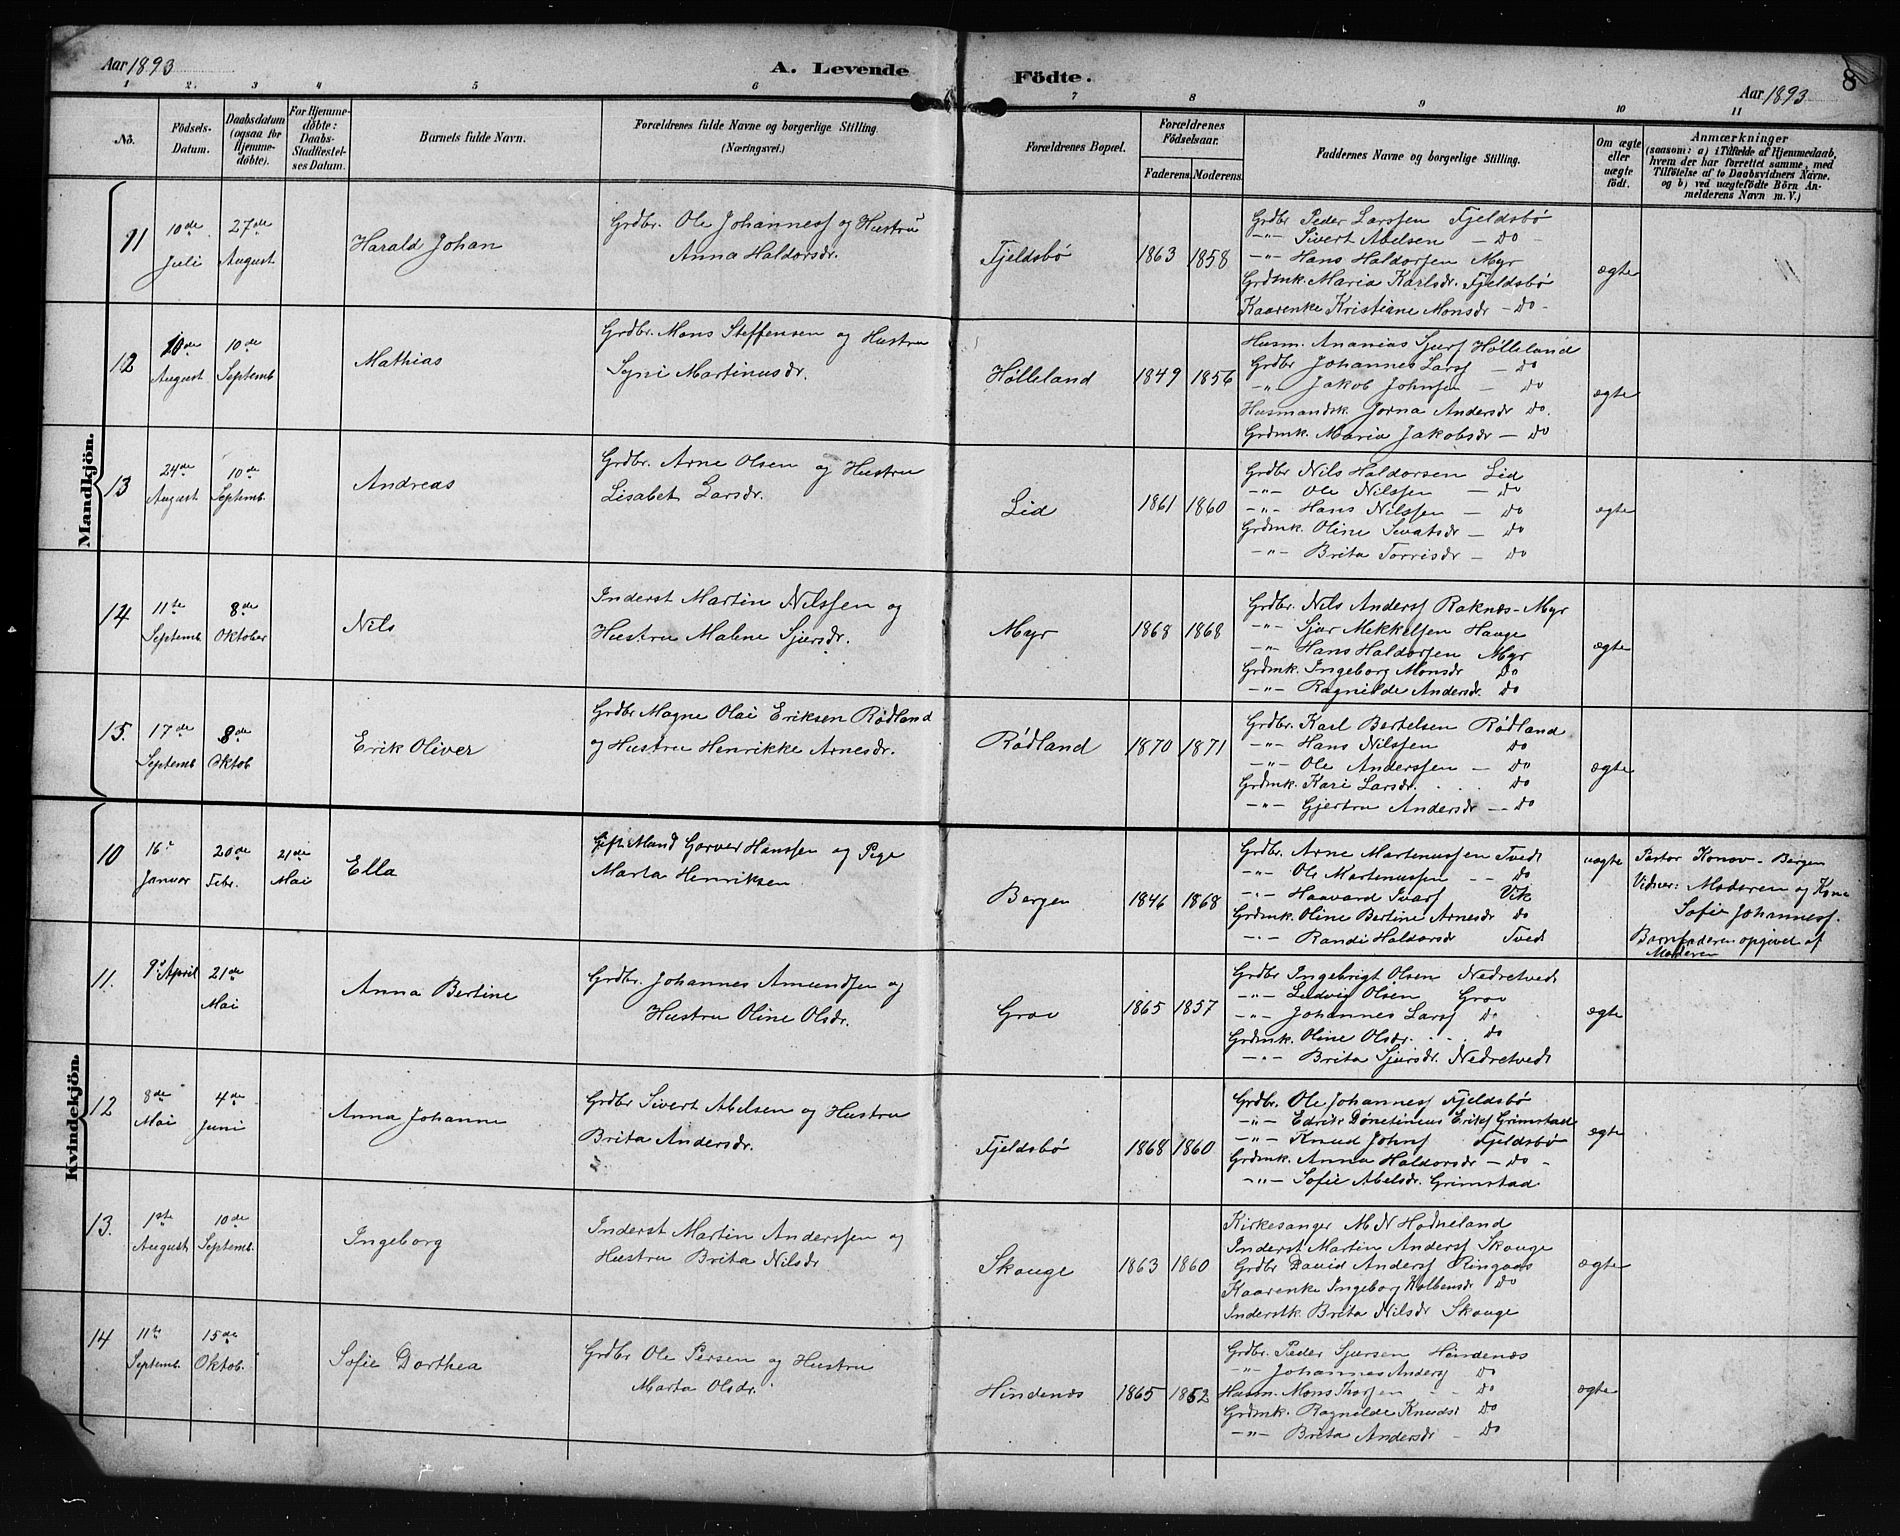 Aar 1893
A. Levende Födte.
8
Aar 1893
1 2. 3 4 5 6 7 8 9 10 11
No.
Födsels-Datum.
Daabsdatum (ogsaa for Hjemme-döbte).
For Hjemme-döbte: Daabs-Stadfæstel-ses Datum.
Barnets fulde Navn.
Forældrenes fulde Navne og borgerlige Stilling. (Næringsvei.)
Forældrenes Bopæl.
Forældrenes Födselsaar.
Faderens. Moderens.
Faddernes Navne og borgerlige Stilling.
Om ægte eller uægte födt.
Anmærkninger
(saasom: a) i Tilfælde af Hjemmedaab, hvem der har forrettet samme, med Tilföielse af to Daabsvidners Navne. og b) ved uægtefödte Börn An-melderens Navn m. V.)
Mandkjön.
11 10de Juli 27de August Harald Johan
Grdbr. Ole Johanness og Hustru
Anna Haldorsdr.
Fjeldsbø 1863 1858
Grdbr Peder Larssen Fjeldsbø
-"- Sivert Abelsen - Do -
-"- Hans Haldorsen Myr
Grdmk. Maria Karlsdr. Fjeldsbø
Kaarenke Kristiane Monsdr - Do -
ægte
12 20de August 10de Septemb Mathias
Grdbr. Mons Steffensen og Hustru
Syni Martinusdr.
Hølleland 1849 1856
Husm. Ananias Sjurs Hølleland
Grdbr Johannes Larss - Do
" Jakob Johnsen - Do
Husmandsk. Jorna Andersdr Do.
Grdmk. Maria Jakobsdr - Do
ægte
13 24de August 10de Septemb. Andreas
Grdbr. Arne Olsen og Hustru
Lisabet Larsdr.
Lid 1861 1860
Grdbr Nils Haldorsen Lid
-"- Ole Nilssen - Do
-"- Hans Nilssen - Do
Grdmk. Oline Sivatsdr - Do
-"- Brita Torrisdr - Do
ægte
14 11te Septemb. 8de Oktober Nils
Inderst Martin Nilssen og
Hustru Malene Sjursdr.
Myr 1868 1868
Grdbr. Nils Anderss Raknæs-Myr
-"- Sjur Mekkelsen Hauge
-"- Hans Haldorsen Myr
Grdmk. Ingeborg Monsdr Do
-"- Ragnilde Andersdr. Do
ægte
15. 17de Septemb 8de Oktob Erik Oliver
Grdbr Magne Olai Eriksen Rødland
og Hustru Henrikke Arnesdr.
Rødland 1870 1871
Grdbr. Karl Bertelsen Rødland
-"- Hans Nilssen Do
-"- Ole Anderssen - Do
Grdmk. Kari Larsdr. Do
-"- Gjertru Andersdr - Do
ægte
Kvindekjön.
10 16de Januar 20de Febr. 21de Mai Ella
Gift Mand Garver Hanssen og Pige
Marta Henriksen
Bergen 1846 1868
Grdbr. Arne Martinussen Tvedt
-"- Ole Martinussen - - Do
-"- Haavard Ivars Vik
Grdmk. Oline Bertine Arnesdr Do
-"- Randi Haldorsdr Tvedt
uægte
Pastor Konow - Bergen
Vidner: Moderen og Kone
Sofie Johanness.
Barnefaderen opgivet af Moderen
11. 9de April 21de Mai Anna Bertine
Grdbr. Johannes Amundsen og
Hustru Oline Olsdr.
Grov 1865 1857
Grdbr Ingebrigt Olsen Nedretvedt
-"- Ludvig Olsen Grov
-"- Johannes Larss Do
Grdmk. Oline Olsdr. Do
-"- Brita Sjursdr. Nedretvedt
ægte
12 8de Mai 4de Juni Anna Johanne
Grdbr Sivert Abelsen og Hustru
Brita Andersdr.
Fjeldsbø 1868 1860
Grdbr. Ole Johanness Fjeldsbø
-"- Edrik Eriks Grimstad
-"- Knud Johns Fjeldsbø
Grdmk. Anna Haldorsdr - Do -
-"- Sofie Abelsdr. Grimstad
ægte
13. 1ste August 10de Septemb. Ingeborg
Inderst Martin Anderssen og
Hustru Brita Nilsdr
Skauge 1863 1860
Kirkesanger M N Hodneland
Inderst Martin Anderss Skauge
Grdbr David Anderss Ringaas
Kaarenke Ingeborg Kolbensdr Do
Inderstk. Brita Nilsdr Skauge
ægte
14 11te Septemb. 15de Oktob. Sofie Dorthea
Grdbr Ole Persen og Hustru
Marta Olsdr.
Hindenæs 1865 1862
Grdbr. Peder Sjursen Hindenæs
-"- Johannes Anders Do
Husm. Mons Do
Grdmk. Ragnilde Knudsdr Do
-"- Brita Andersdr - Do
ægte